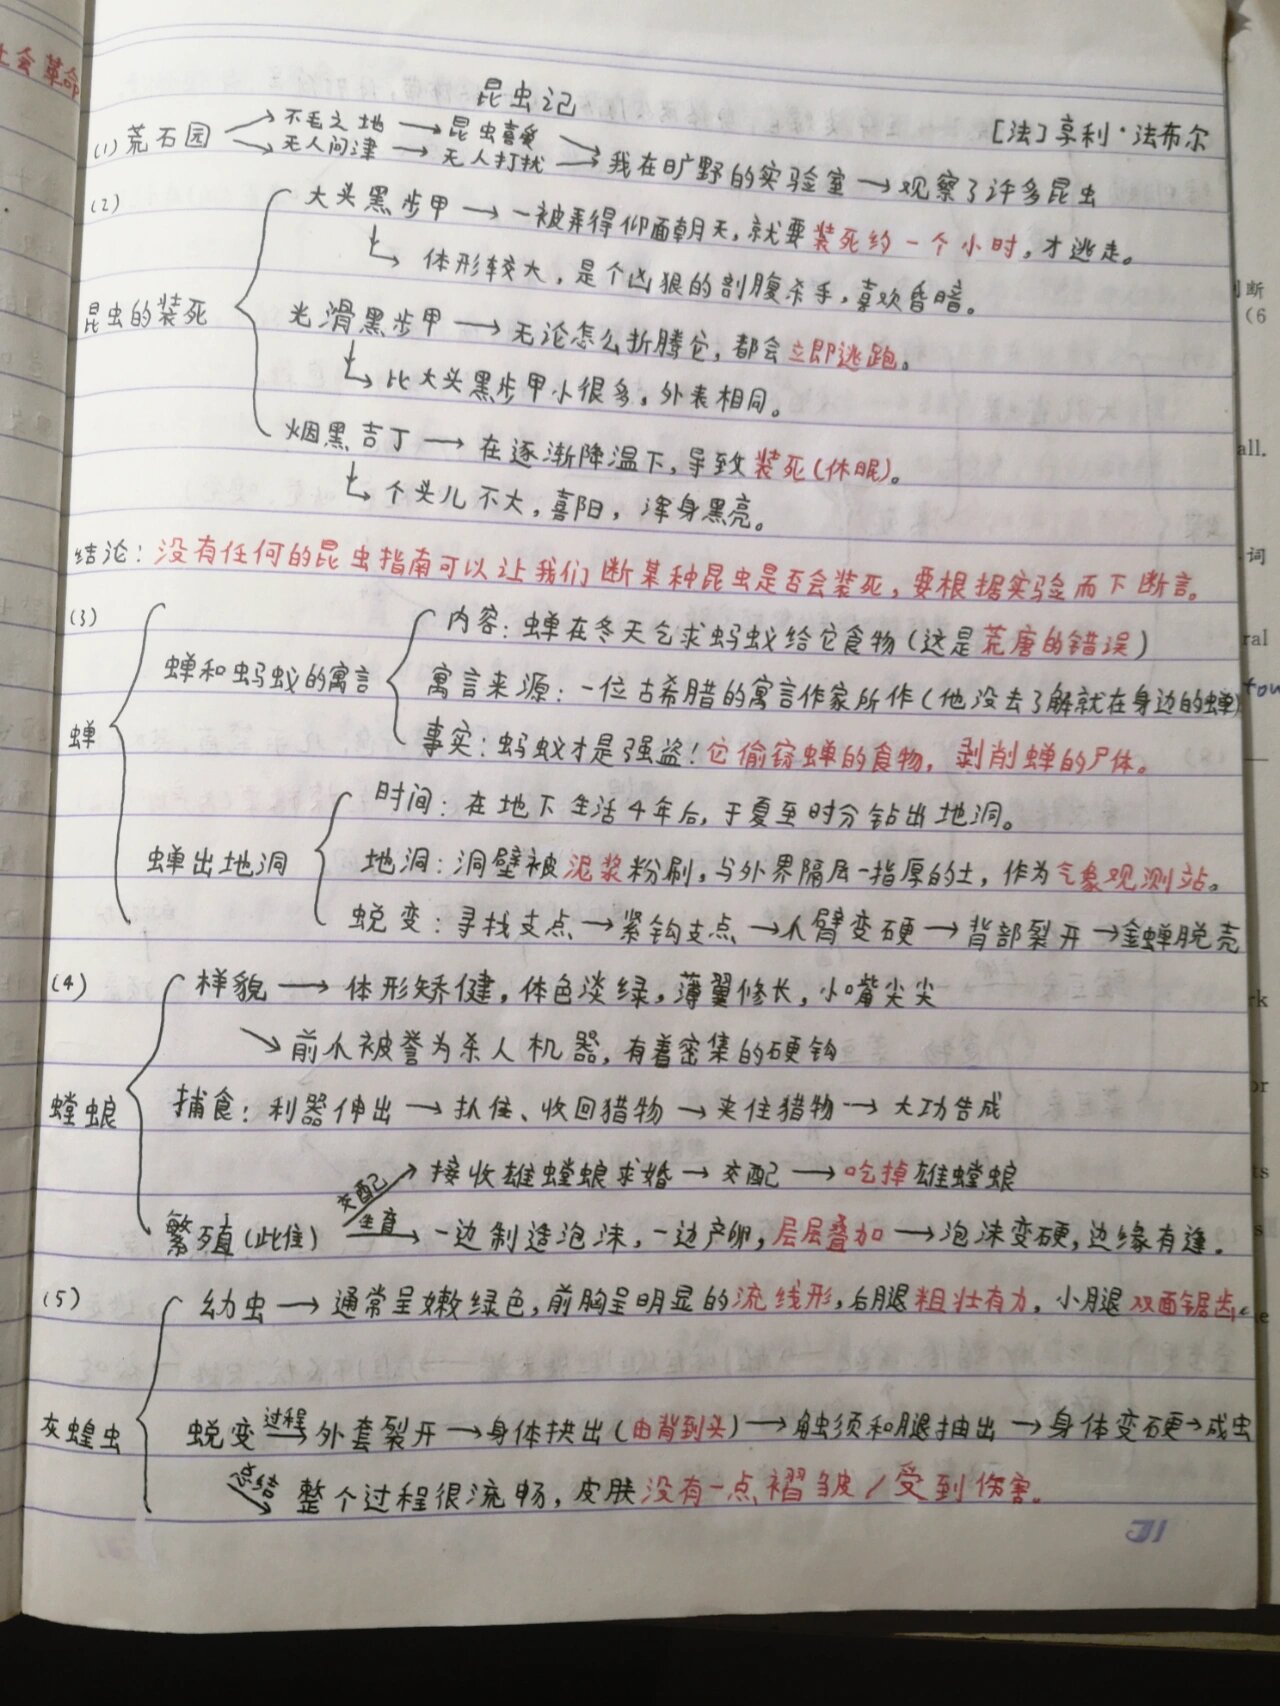 社会革命
昆虫记
[法]亨利·法布尔
(1)荒石园
不毛之地→昆虫喜爱
无人问津→无人打扰
→我在旷野的实验室→观察了许多昆虫
(2)
昆虫的装死
大头黑步甲→一被弄得仰面朝天,就要装死约一个小时,才逃走。
体形较大,是个凶狠的剖腹杀手,喜欢昏暗。
光滑黑步甲→无论怎么折腾它,都会立即逃跑。
比大头黑步甲小很多。外表相同。
烟黑吉丁→在逐渐降温下,导致装死(休眠)。
个头儿不大,喜阳,浑身黑亮。
结论:没有任何的昆虫指南可以让我们断某种昆虫是否会装死,要根据实验而下断言。
(3)
蝉
蝉和蚂蚁的寓言
内容:蝉在冬天乞求蚂蚁给它食物(这是荒唐的错误)
寓言来源:一位古希腊的寓言作家所作(他没去了解就在身边的蝉)
事实:蚂蚁才是强盗!它偷窃蝉的食物,剥削蝉的尸体。
蝉出地洞
时间:在地下生活4年后,于夏至时分钻出地洞。
地洞:洞壁被泥浆粉刷,与外界隔层一指厚的土,作为气象观测站。
蜕变:寻找支点→紧钩支点→爪臂变硬→背部裂开→金蝉脱壳
(4)
螳螂
样貌→体形矫健,体色淡绿,薄翼修长,小嘴尖尖
前爪被誉为杀人机器,有着密集的硬钩
捕食:利器伸出→扒住、收回猎物→夹住猎物→大功告成
繁殖(此佳)
交配→接收雄螳螂求婚→交配→吃掉雄螳螂
生育→一边制造泡沫,一边产卵,层层叠加→泡沫变硬,边缘有逢.
(5)
灰蝗虫
幼虫→通常呈嫩绿色,前胸呈明显的流线形,后腿粗壮有力,小腿双面锯齿。
蜕变过程→外套裂开→身体拱出(由背到头)→触须和腿抽出→身体变硬→成虫
总结→整个过程很流畅,皮肤没有一点褶皱/受到伤害。
判断
(6
all.
词
ral
tou
rk
or
ts
s